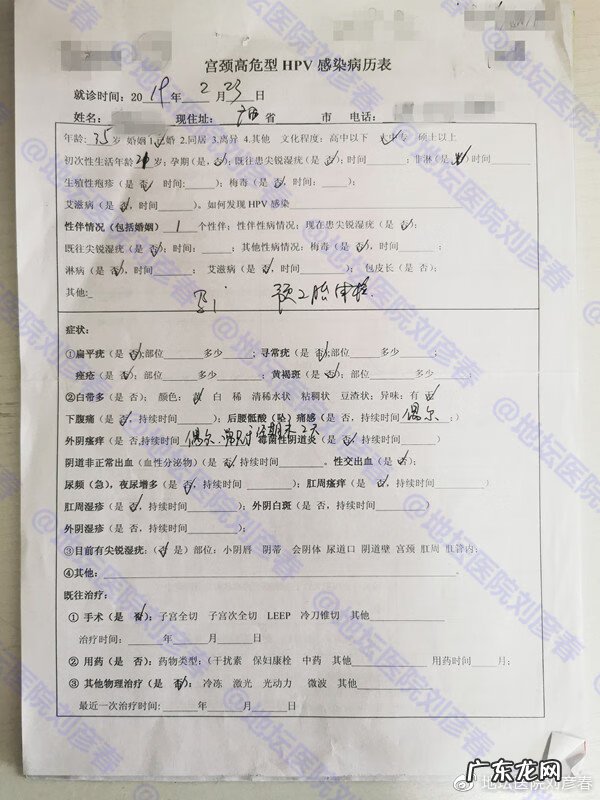 宫颈高危型 HPV 感染病历表
就诊时间：2019年 2 月 23 日
姓名： 现住址： 省 市 电话：
年龄：35岁 婚姻 1.已婚 2.同居 3.离异 4.其他 文化程度：高中以下 大中专 硕士以上
初次性生活年龄 岁；孕期（是，否）；既往患尖锐湿疣（是 否）；时间 ；非淋（是 否）时间
生殖性疱疹（是 否 时间： ）；梅毒（是 否，时间： ）；
艾滋病（是 否，时间 ）。如何发现 HPV 感染
性伴情况（包括婚姻） 1 个性伴；性伴性病情况：现在患尖锐湿疣（是 否）；
既往尖锐湿疣（是 否）；时间： ；其他性病情况：梅毒（是 否，时间 ；
淋病（是 否），时间 ；艾滋病（是 否，时间 ）；包皮长（是 否）；
其他： 孕二胎体检
症状：
①扁平疣（是 否）；部位 多少 ；寻常疣（是 否）；部位 多少 ；
痤疮（是 否）；部位 多少 ；黄褐斑（是 否）；部位 多少 ；
②白带多（是 否）； 颜色： 黄 白 稀 清稀水状 粘稠状 豆渣状；异味：有 无
下腹痛（是 否，持续时间 ）；后腰骶酸（坠）痛感（是 否，持续时间 偶尔 ；）
外阴瘙痒（是 否，持续时间 偶尔 经期末2天 细菌性阴道炎（是 否，持续时间 ）
阴道非正常出血（血性分泌物）（是 否，持续时间 。性交出血（是 否）；
尿频（急），夜尿增多（是 否，持续时间 ）；肛周瘙痒（是 否，持续时间 ）
肛周湿疹（是 否，持续时间 ）；外阴白斑（是 否，持续时间 ）
外阴湿疹（是 否，持续时间 ）；
③目前有尖锐湿疣：（否 是）部位：小阴唇 阴蒂 会阴体 尿道口 阴道壁 宫颈 肛周 肛管内；
④其他： 。
既往治疗：
① 手术（是 否）：子宫全切 子宫次全切 LEEP 冷刀锥切 其他
治疗时间： 年 月 日
② 用药（是 否）：药物类型：（干扰素 保妇康栓 中药 其他 用药时间 月；
③ 其他物理治疗（是 否）：冷冻 激光 光动力 微波 其他
最近一次治疗时间： 年 月 日
@地坛医院刘彦春
广东龙网
@地坛医院刘彦春